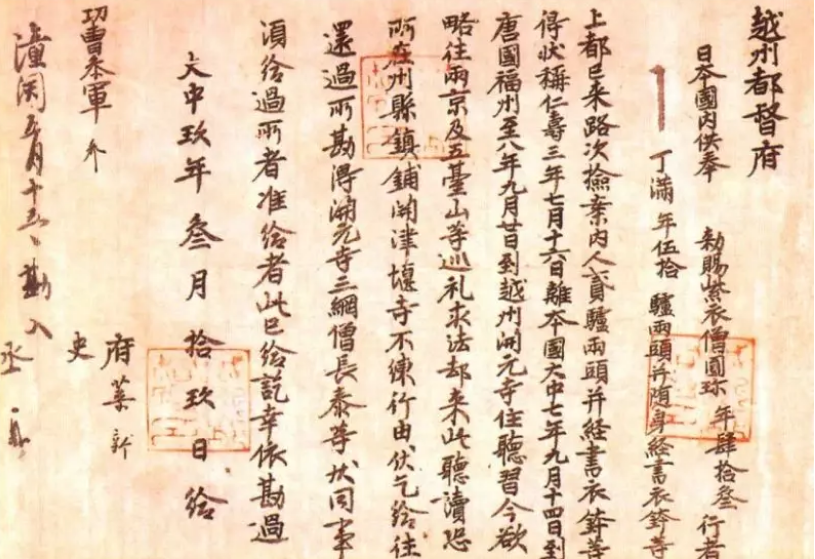 越州都督府
日夲國内供奉　勑賜紫衣僧圓珎　年肆拾叄　行者
丁滿　年伍拾　驢兩頭并随身経書衣鉢等
上都已来路次撿案内人貟驢兩頭并経書衣鉢等
得狀稱仁壽三年七月十六日離夲國大中七年九月十四日到
唐國福州至八年九月廿日到越州開元寺住聽習今欲
略往兩京及五臺山等巡礼求法却来此聽讀恐
所在州縣鎮鋪關津堰寺不練行由伏乞給往
還過所勘得開元寺三綱僧長泰等狀同事
湏給過所者准給者此已給訖幸依勘過
大中玖年叁月拾玖日給
府葉新
史
功曹叅軍
潼関五月十五日勘入
丞